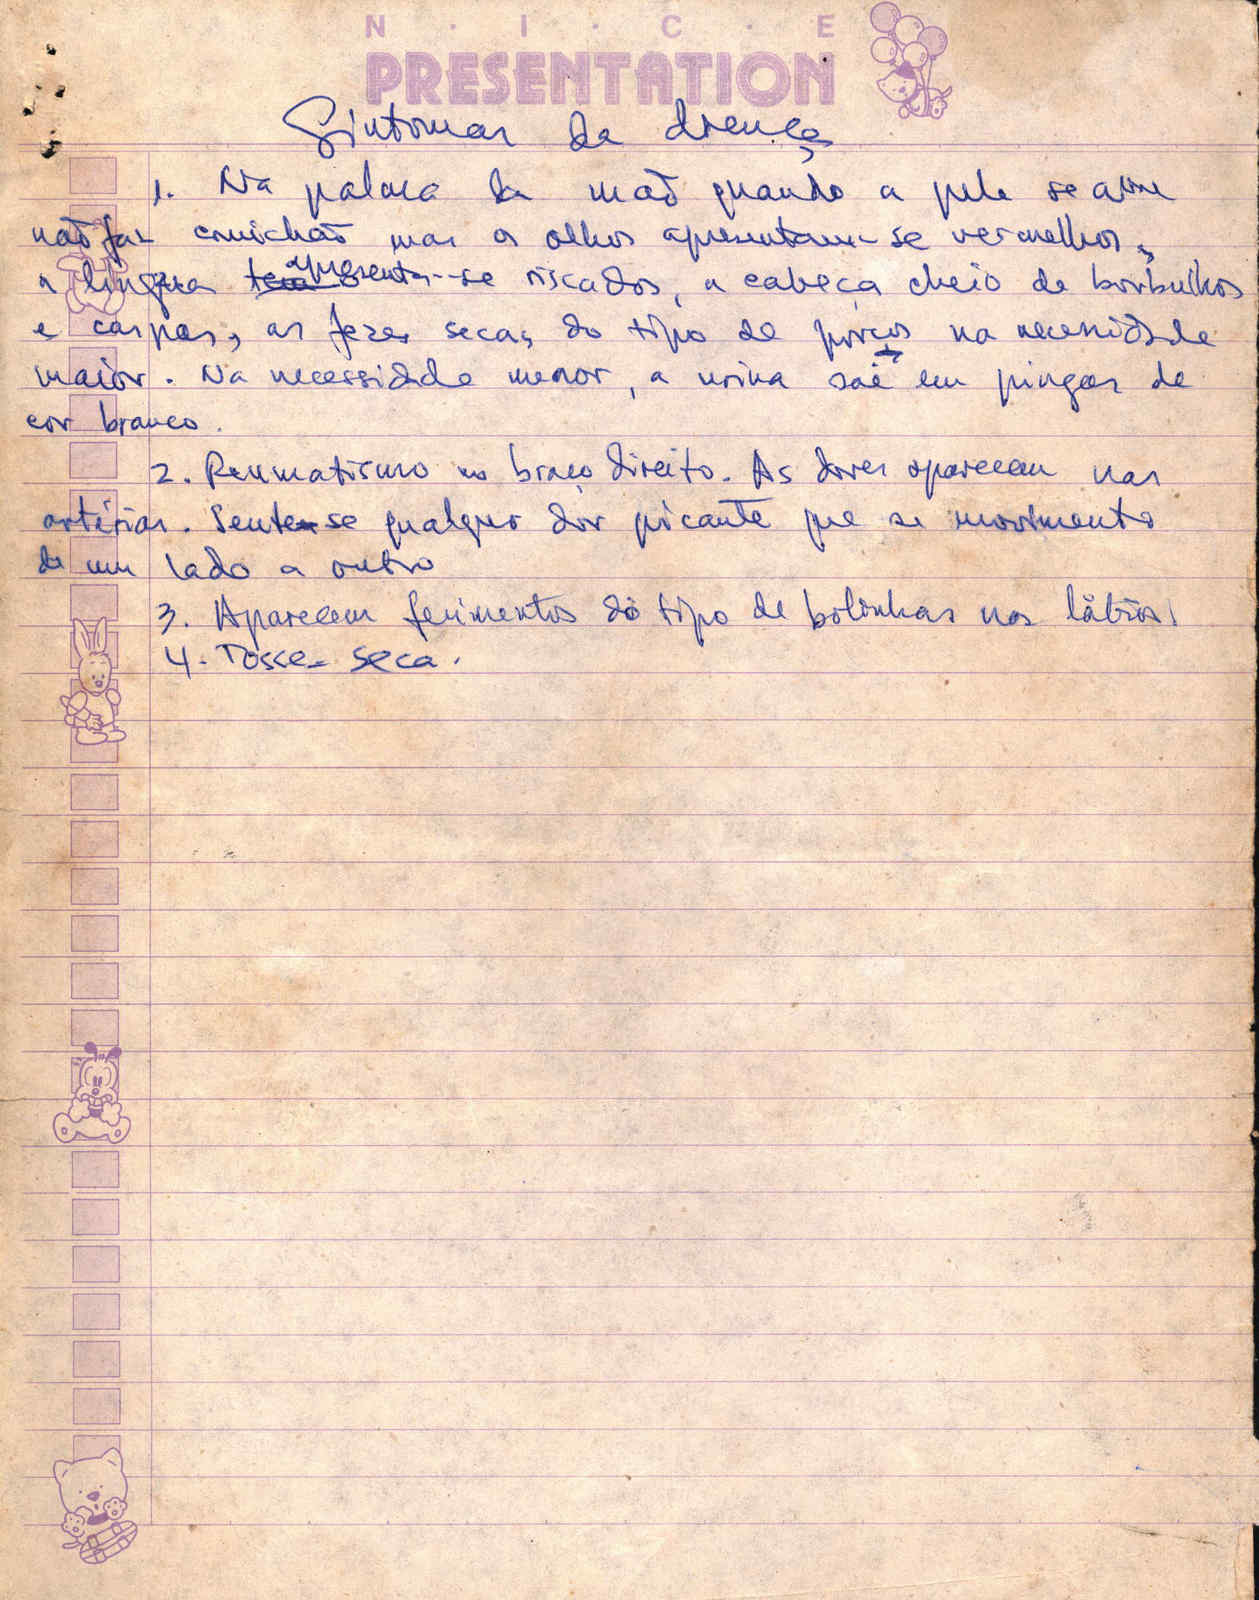 N · I · C · E
PRESENTATION
Sintomas da doença
1. Na palma da mão quando a pele se abre
não faz comichão mas os olhos apresentam-se vermelhos,
a língua tem apresenta-se riscados, a cabeça cheio de borbulhos
e caspas, as fezes secas do tipo de porcos na necessidade
maior. Na necessidade menor, a urina sai em pingas de
cor branco.
2. Reumatismo no braço direito. As dores aparecem nas
artérias. Sente-se qualquer dor picante que se movimenta
de um lado a outro
3. Aparecem ferimentos do tipo de bolinhas nos lábios.
4. Tosse seca.